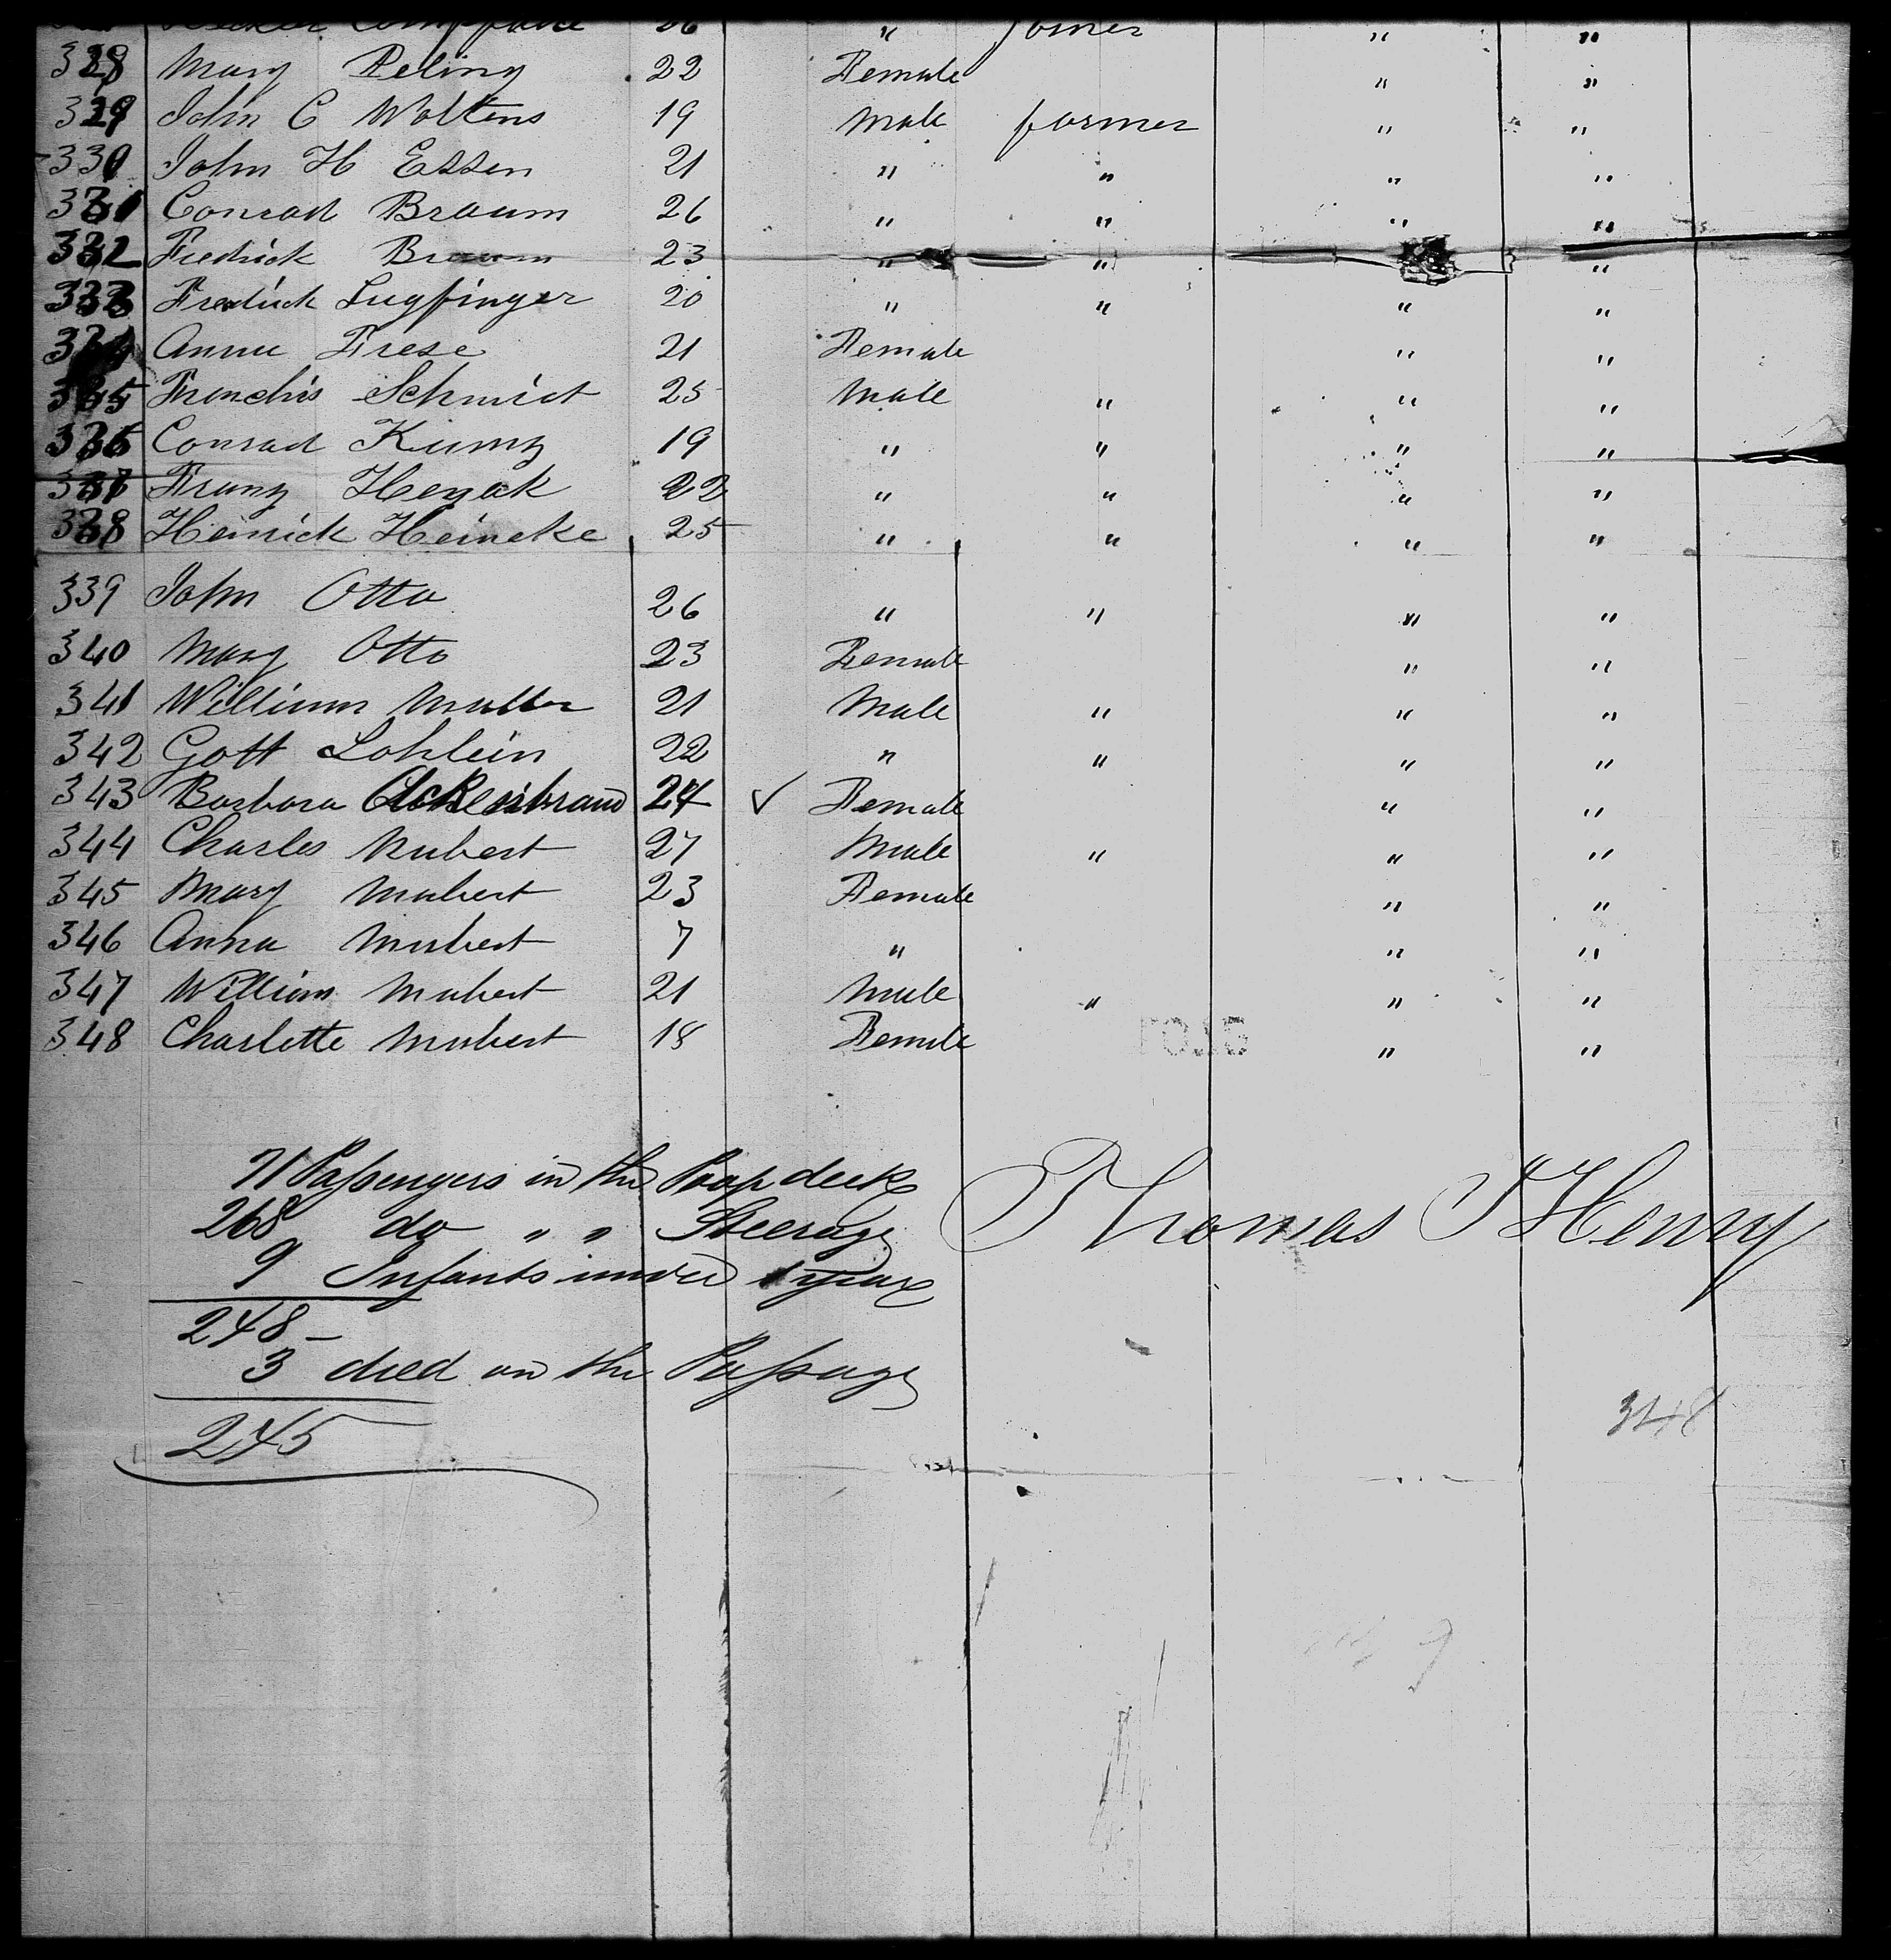 26 " " "
328 Mary Peling 22 Female " "
329 John C Woltens 19 Male farmer " "
330 John H Essen 21 " " " "
331 Conrad Braum 26 " " " "
332 Fredrick Braum 23 " " "
333 Fredrick Lugfinger 20 " " " "
334 Annie Frese 21 Female " "
335 Franchis Schmidt 25 Male " " "
336 Conrad Kunz 19 " " " "
337 Franz Henak 22 " " " "
338 Heinrick Heineke 25 " " " "
339 John Otto 26 " " " "
340 Mary Otto 23 Female " "
341 William Muller 21 Male " " "
342 Gott Lohlein 22 " " " "
343 Barbara Ackenbrand 24 ✓ Female " "
344 Charles Mubert 27 Male " " "
345 Mary Mubert 23 Female " "
346 Anna Mubert 7 " " "
347 William Mubert 21 Male " " "
348 Charlette Mubert 18 Female " "
71 Passengers in the Poop deck
268 do " " Steerage
9 Infants under 1 year
Thomas J Henry
248 –
3 died on the Passage
245
348